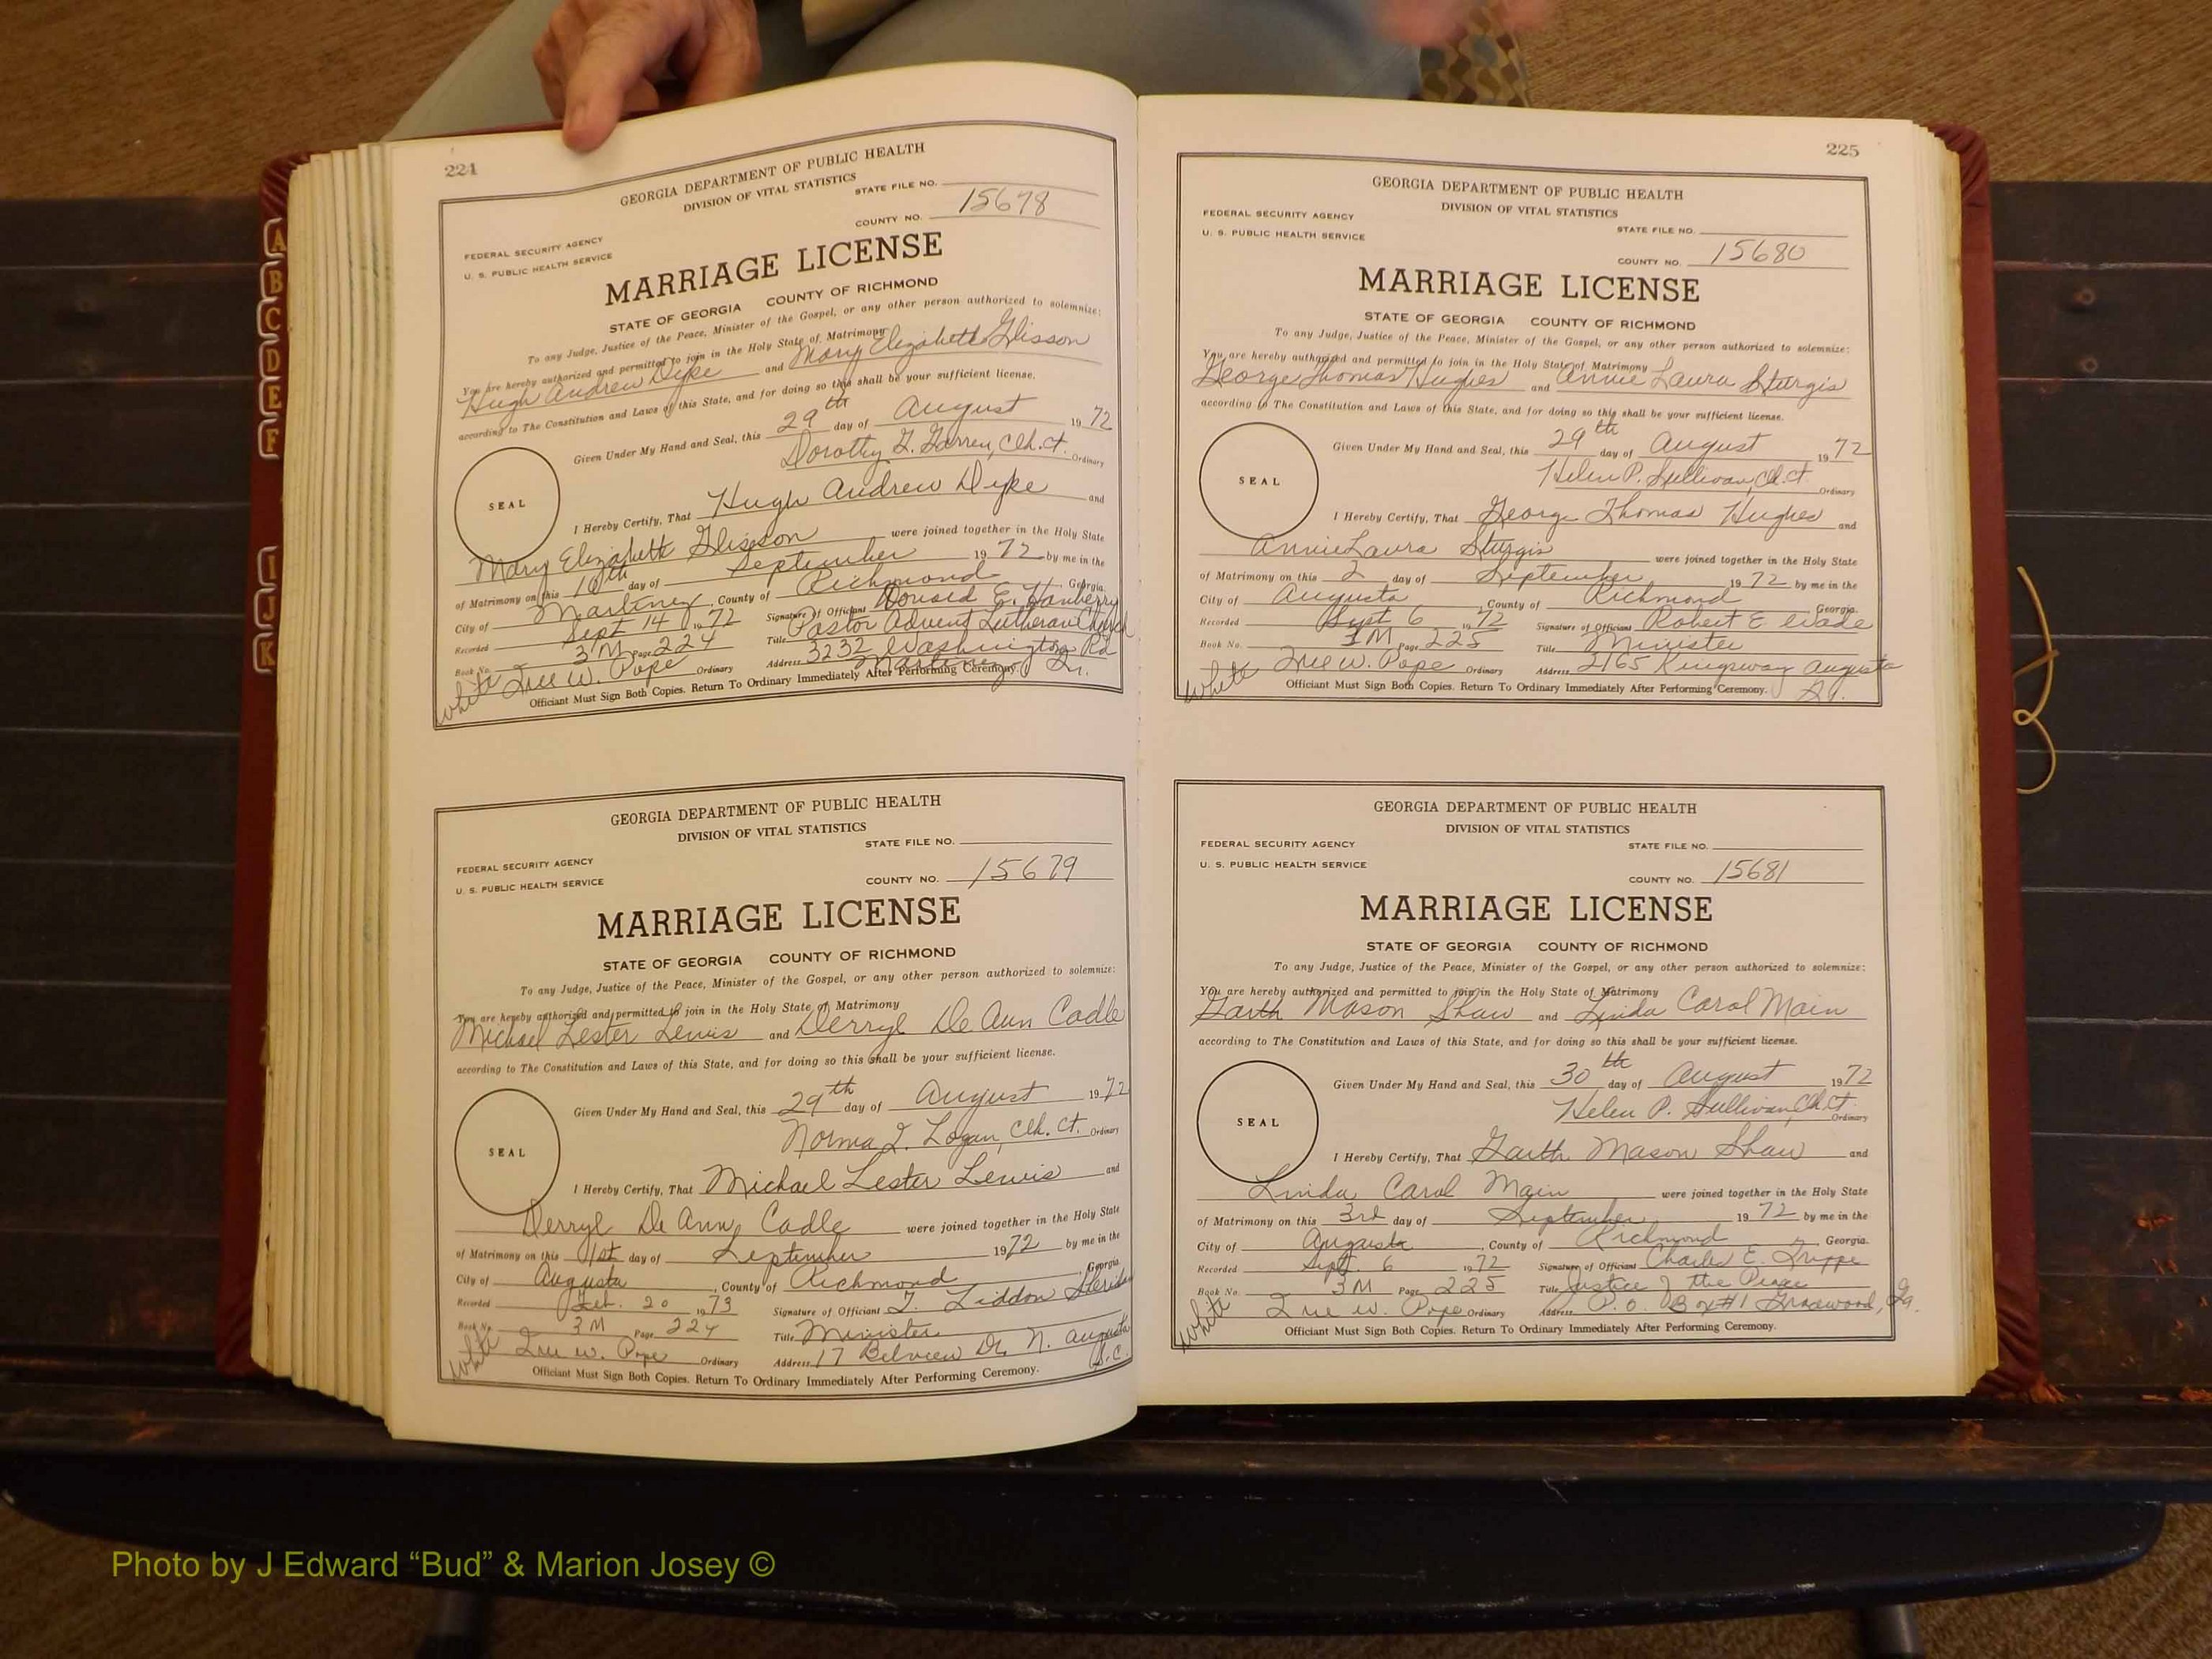 A
B
C
D
E
F
I
J
K
224
GEORGIA DEPARTMENT OF PUBLIC HEALTH
DIVISION OF VITAL STATISTICS
STATE FILE NO.
COUNTY NO. 15678
FEDERAL SECURITY AGENCY
U. S. PUBLIC HEALTH SERVICE
MARRIAGE LICENSE
STATE OF GEORGIA COUNTY OF RICHMOND
To any Judge, Justice of the Peace, Minister of the Gospel, or any other person authorized to solemnize:
You are hereby authorized and permitted to join in the Holy State of Matrimony
Hugh Andrew Dyke and Mary Elizabeth Glisson
according to The Constitution and Laws of this State, and for doing so this shall be your sufficient license.
Given Under My Hand and Seal, this 29th day of August 1972
Dorothy Clk. Ct. Ordinary
SEAL
I Hereby Certify, That Hugh Andrew Dyke and
Mary Elizabeth Glisson were joined together in the Holy State
of Matrimony on this day of September 1972 by me in the
City of Martinez, County of Richmond, Georgia.
Recorded Sept 14 1972 Signature of Officiant Donald E. Hanberry
Book No. 3M Page 224 Title Pastor Advent Lutheran Church
White True W. Pope Ordinary Address 3232 Washington Rd
Martinez Ga.
Officiant Must Sign Both Copies. Return To Ordinary Immediately After Performing Ceremony.
GEORGIA DEPARTMENT OF PUBLIC HEALTH
DIVISION OF VITAL STATISTICS
STATE FILE NO.
FEDERAL SECURITY AGENCY
U. S. PUBLIC HEALTH SERVICE
COUNTY NO. 15679
MARRIAGE LICENSE
STATE OF GEORGIA COUNTY OF RICHMOND
To any Judge, Justice of the Peace, Minister of the Gospel, or any other person authorized to solemnize:
You are hereby authorized and permitted to join in the Holy State of Matrimony
Michael Lester Lewis and Derryl De Ann Cadle
according to The Constitution and Laws of this State, and for doing so this shall be your sufficient license.
Given Under My Hand and Seal, this 29th day of August 1972
Norma I. Logan, Clk. Ct. Ordinary
SEAL
I Hereby Certify, That Michael Lester Lewis and
Derryl De Ann Cadle were joined together in the Holy State
of Matrimony on this 1st day of September 1972 by me in the
City of Augusta, County of Richmond, Georgia
Recorded Feb. 20 1973 Signature of Officiant Liddon
Book No. 3M Page 224 Title Minister
White True W. Pope Ordinary Address 17 Belview Dr. N. Augusta
S.C.
Officiant Must Sign Both Copies. Return To Ordinary Immediately After Performing Ceremony.
225
GEORGIA DEPARTMENT OF PUBLIC HEALTH
DIVISION OF VITAL STATISTICS
FEDERAL SECURITY AGENCY
U. S. PUBLIC HEALTH SERVICE
STATE FILE NO.
COUNTY NO. 15680
MARRIAGE LICENSE
STATE OF GEORGIA COUNTY OF RICHMOND
To any Judge, Justice of the Peace, Minister of the Gospel, or any other person authorized to solemnize:
You are hereby authorized and permitted to join in the Holy State of Matrimony
George Thomas Hughes and Annie Laura Sturgis
according to The Constitution and Laws of this State, and for doing so this shall be your sufficient license.
Given Under My Hand and Seal, this 29th day of August 1972
Helen P. Sullivan, Clk. Ct. Ordinary
SEAL
I Hereby Certify, That George Thomas Hughes and
Annie Laura Sturgis were joined together in the Holy State
of Matrimony on this 2 day of September 1972 by me in the
City of Augusta, County of Richmond Georgia.
Recorded Sept 6 1972 Signature of Officiant Robert E Wade
Book No. 3M Page 225 Title Minister
White True W. Pope Ordinary Address 2165 Kingsway Augusta
Ga.
Officiant Must Sign Both Copies. Return To Ordinary Immediately After Performing Ceremony.
GEORGIA DEPARTMENT OF PUBLIC HEALTH
DIVISION OF VITAL STATISTICS
FEDERAL SECURITY AGENCY
U. S. PUBLIC HEALTH SERVICE
STATE FILE NO.
COUNTY NO. 15681
MARRIAGE LICENSE
STATE OF GEORGIA COUNTY OF RICHMOND
To any Judge, Justice of the Peace, Minister of the Gospel, or any other person authorized to solemnize:
You are hereby authorized and permitted to join in the Holy State of Matrimony
Garth Mason Shaw and Linda Carol Main
according to The Constitution and Laws of this State, and for doing so this shall be your sufficient license.
Given Under My Hand and Seal, this 30th day of August 1972
Helen P. Sullivan, Clk. Ct. Ordinary
SEAL
I Hereby Certify, That Garth Mason Shaw and
Linda Carol Main were joined together in the Holy State
of Matrimony on this 3rd day of September 1972 by me in the
City of Augusta, County of Richmond, Georgia.
Recorded Sept. 6 1972 Signature of Officiant Charles E.
Book No. 3M Page 225 Title Justice of the Peace
White True W. Pope Ordinary Address P.O. Box #1 Gracewood, Ga.
Officiant Must Sign Both Copies. Return To Ordinary Immediately After Performing Ceremony.
Photo by J Edward “Bud” & Marion Josey ©